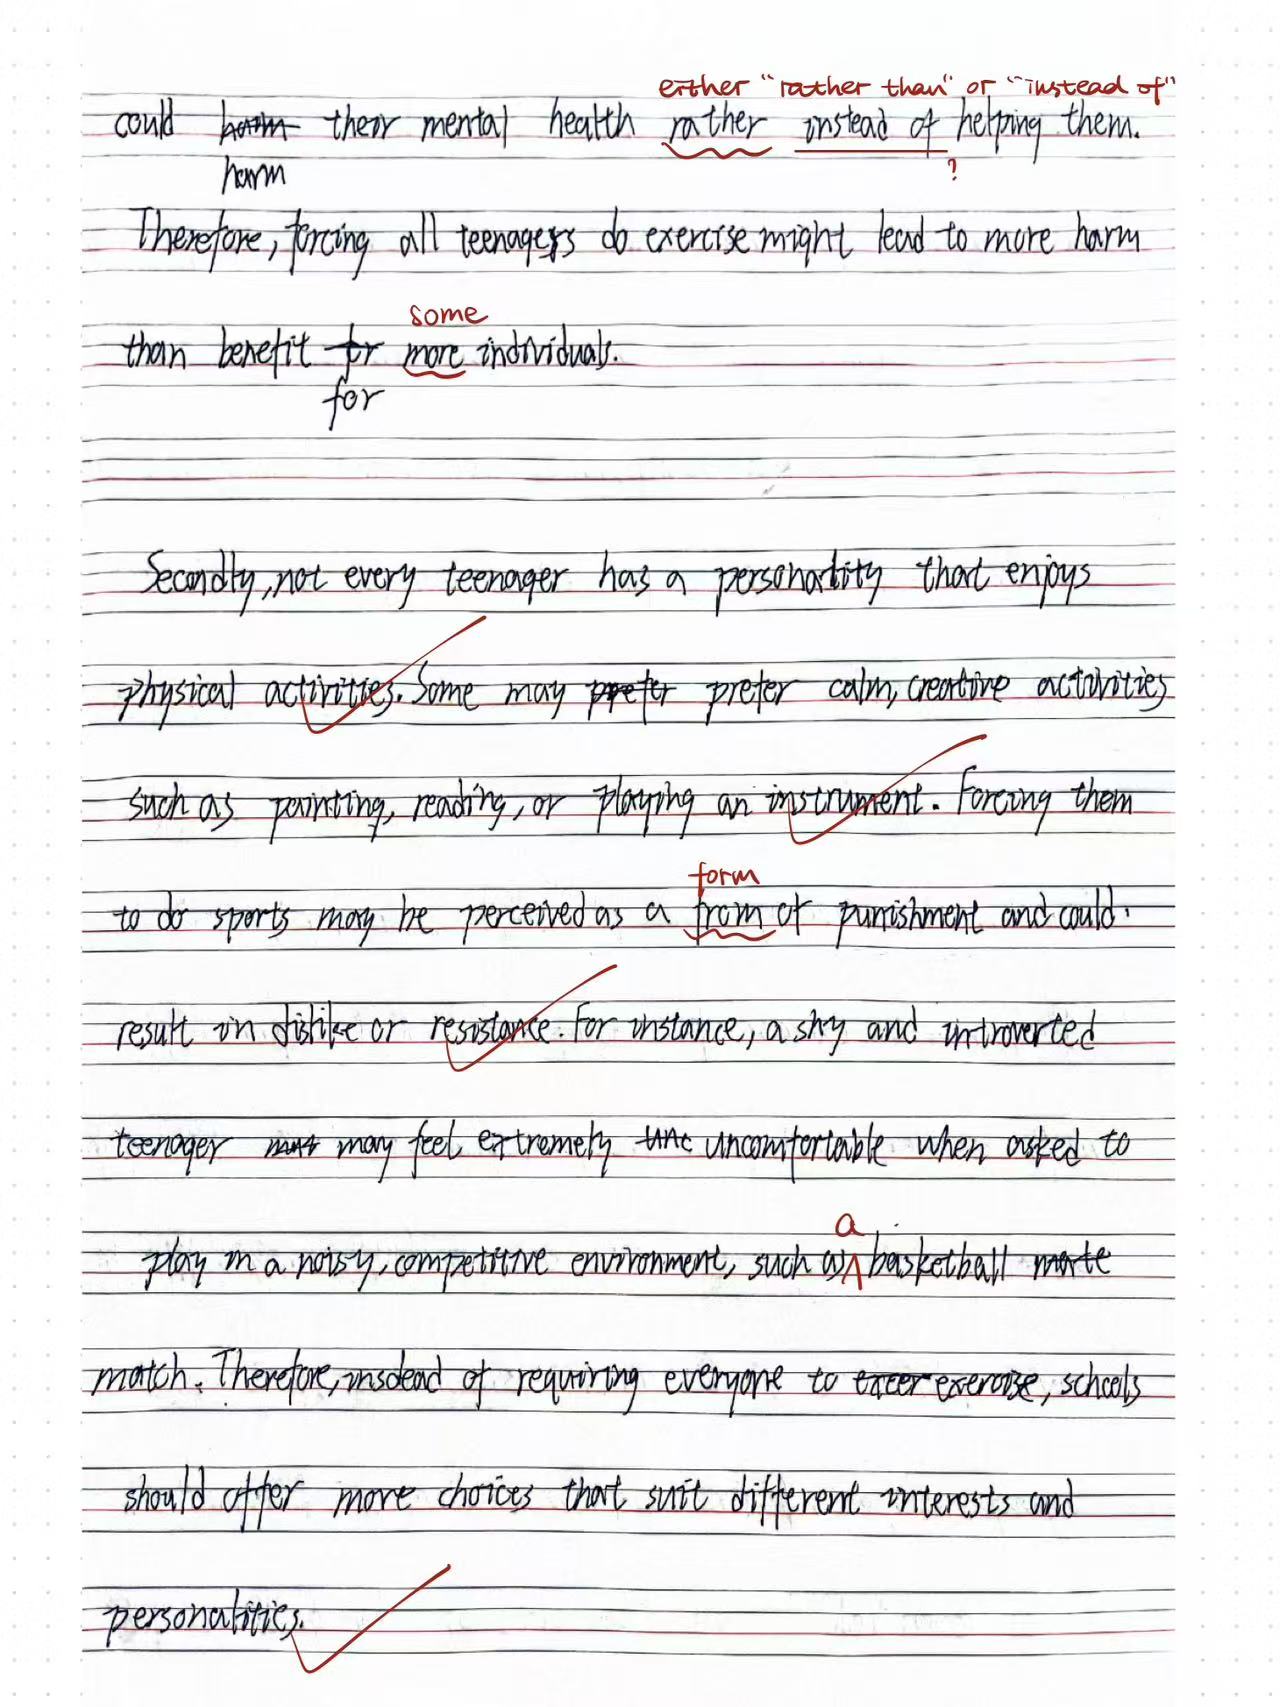 either "rather than" or "instead of"
could harm their mental health rather instead of helping them.
harm ?
Therefore, forcing all teenagers do exercise might lead to more harm
some
than benefit for more individuals.
for
Secondly, not every teenager has a personality that enjoys
physical activities. Some may prefer prefer calm, creative activities
such as painting, reading, or playing an instrument. Forcing them
form
to do sports may be perceived as a from of punishment and could
result in dislike or resistance. For instance, a shy and introverted
teenager may feel extremely unc uncomfortable when asked to
a
play in a noisy, competitive environment, such as basketball mate
match. Therefore, insdead of requiring everyone to excer exercise, schools
should offer more choices that suit different interests and
personalities.